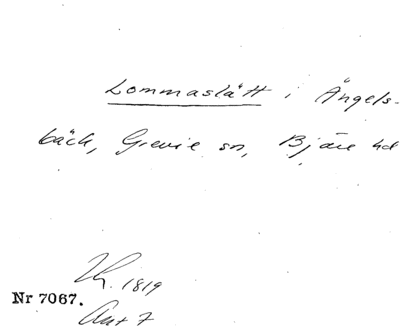 Lommaslätt i Ängels-
bäck, Grevie sn, Bjäre hd
1819
Nr 7067.
Akt 7